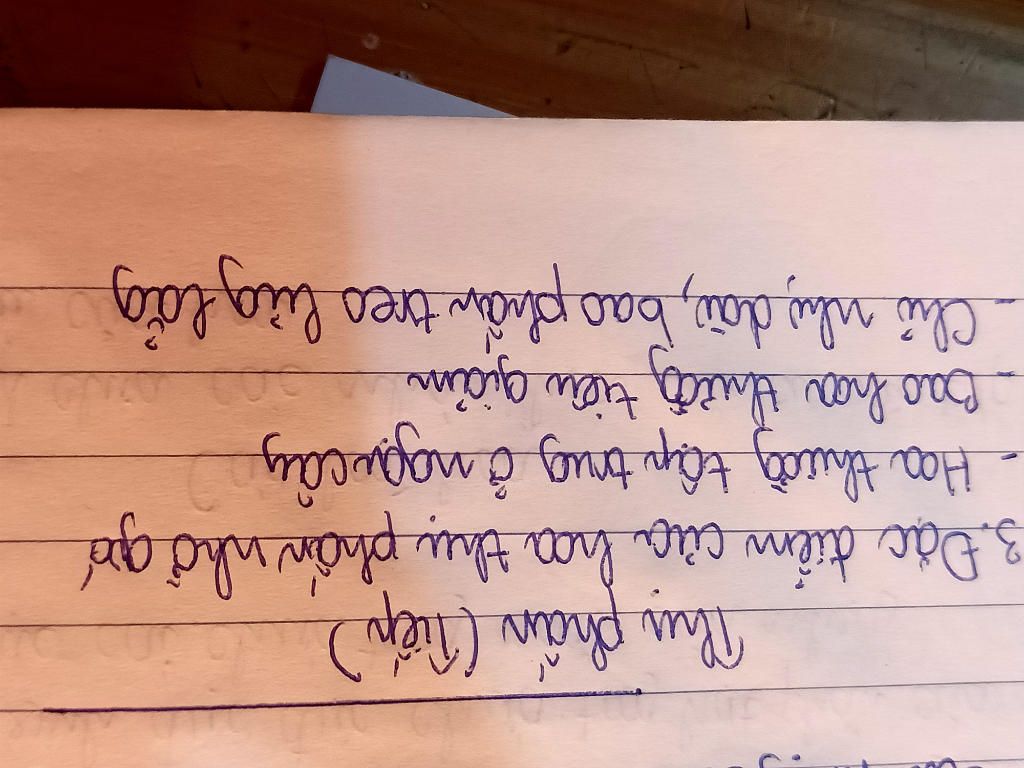 Thụ phấn (Tiếp)
3. Đặc điểm của hoa thụ phấn nhờ gió
- Hoa thường tập trung ở ngọn cây
- Bao hoa thường tiêu giảm
- Chỉ nhị dài, bao phấn treo lủng lẳng